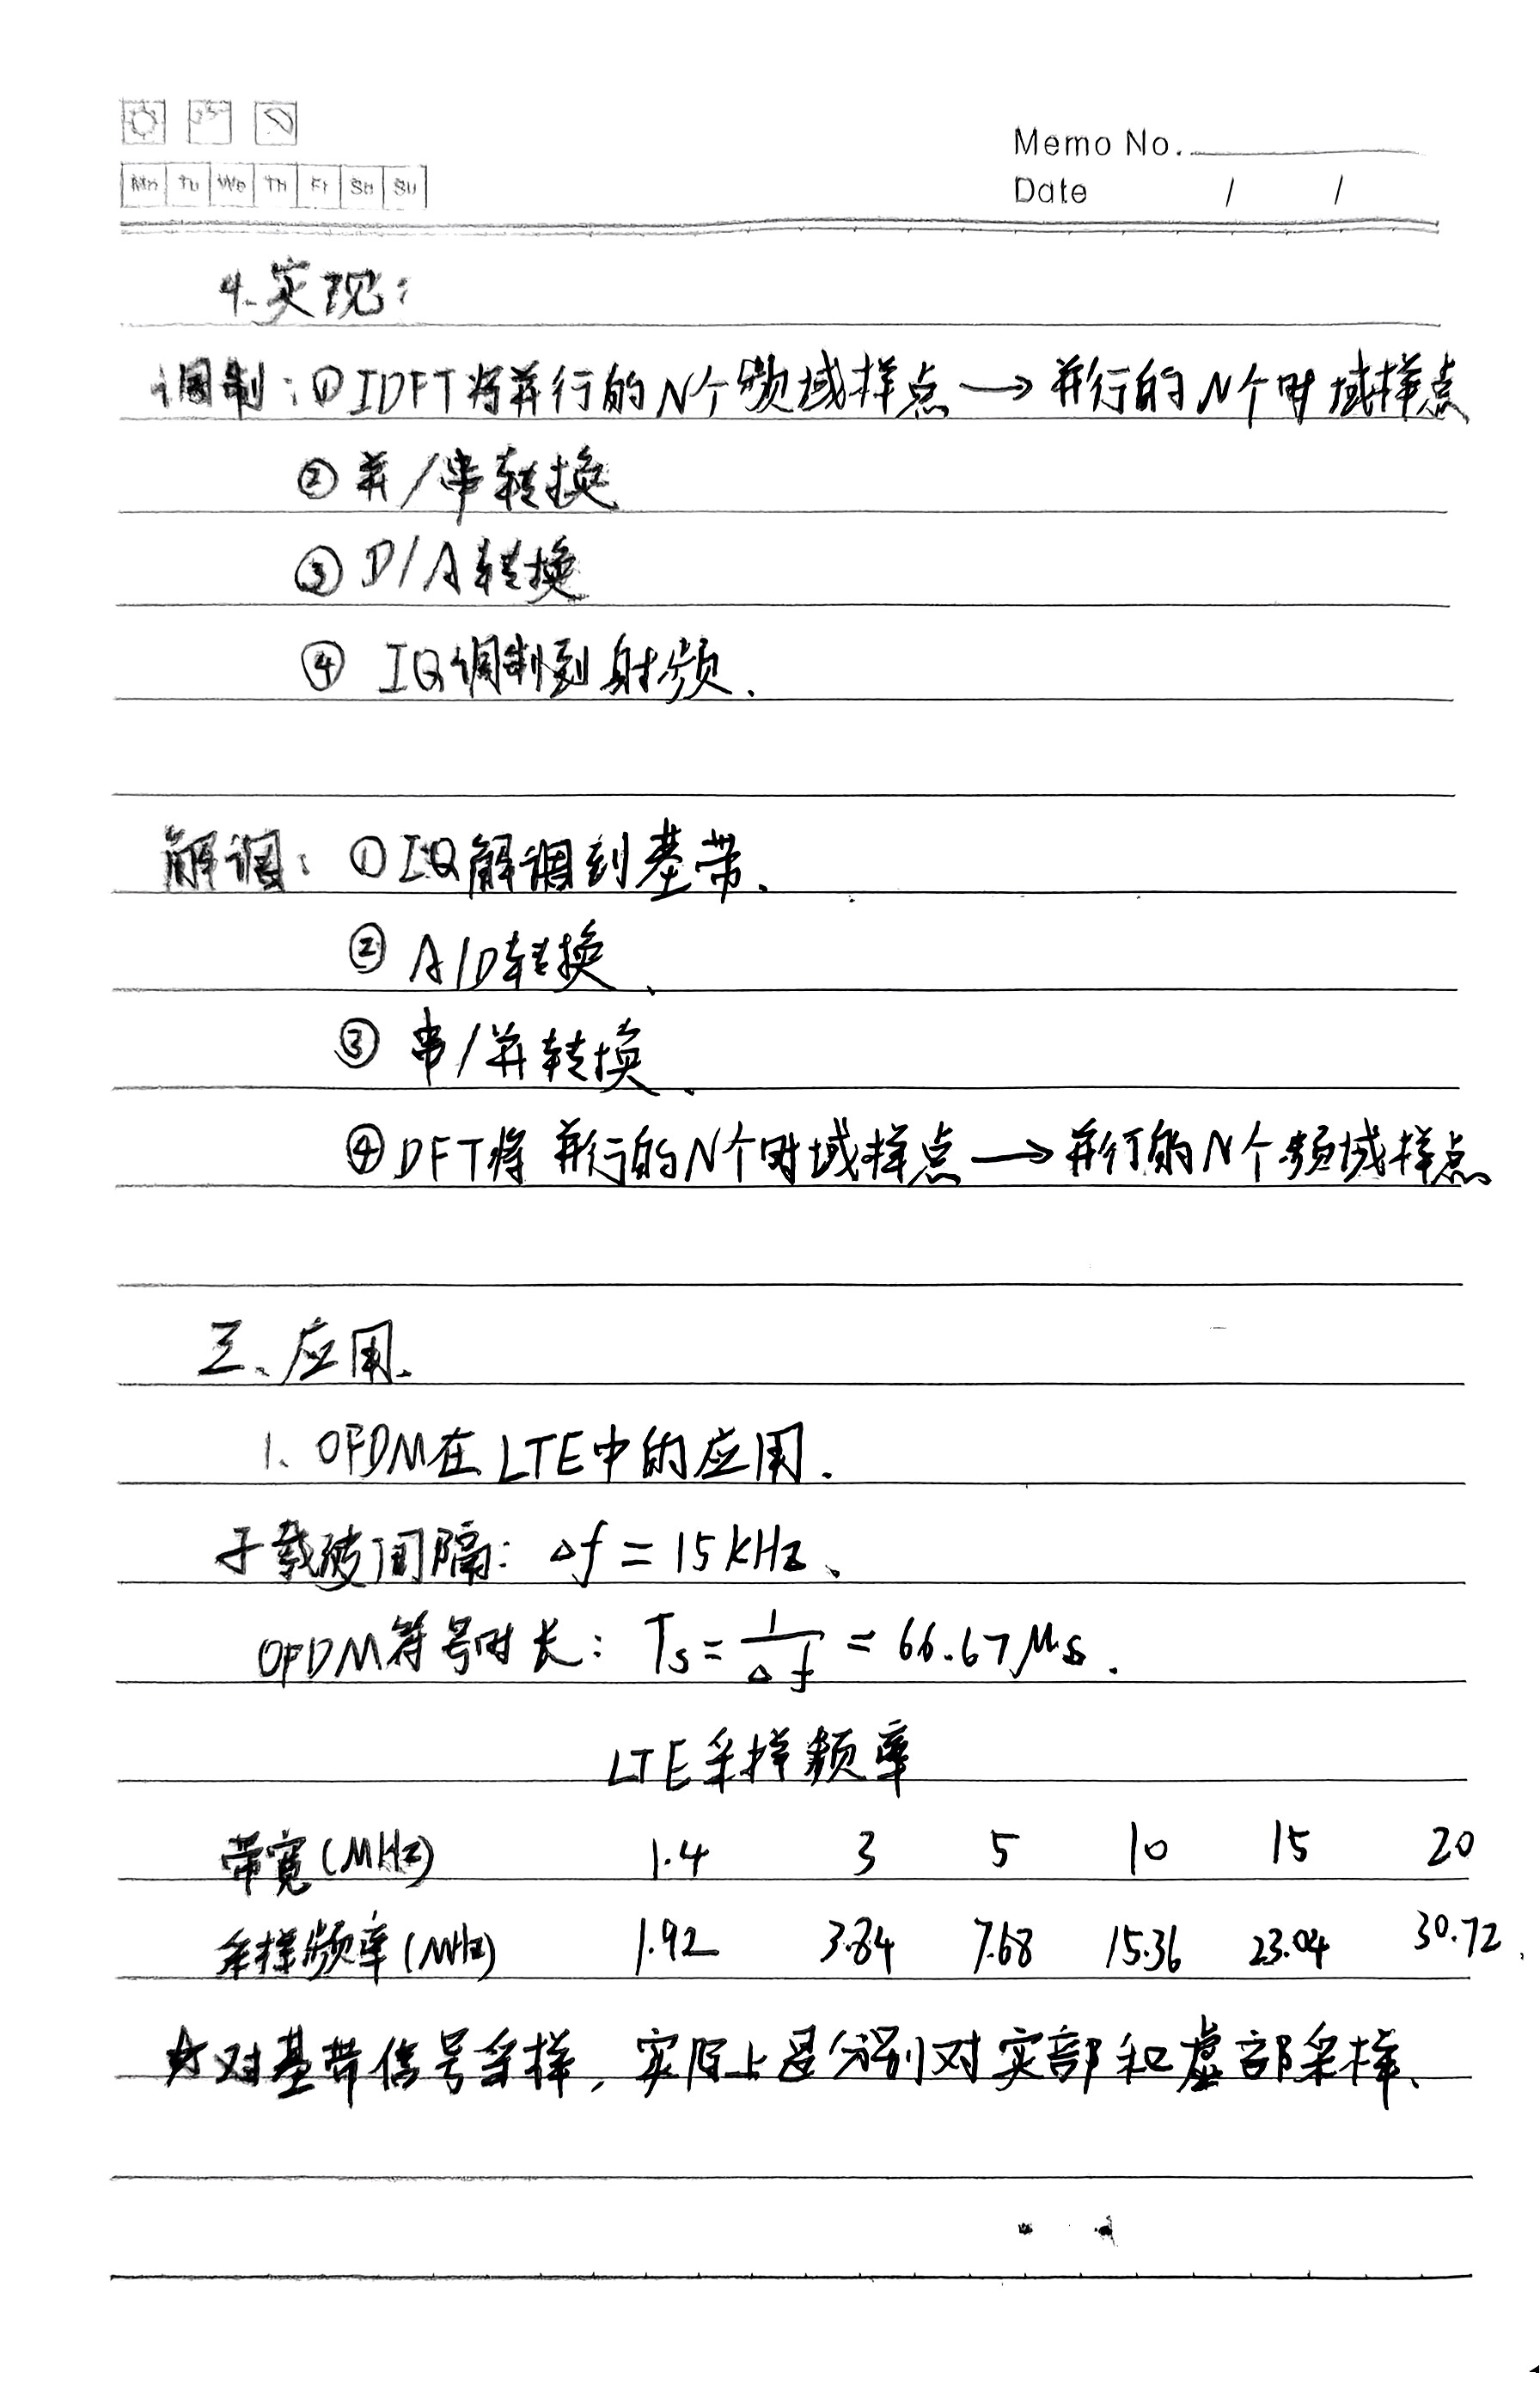 Memo No.
Mn Tu We Th Fr Sa Su
Date / /
4. 实现:
调制:①IDFT将并行的N个频域样点→并行的N个时域样点
②并/串转换
③D/A转换
④ IQ调制到射频.
解调: ①IQ解调到基带、
② A/D转换、
③ 串/并转换、
④DFT将 并行的N个时域样点→并行的N个频域样点
三、应用、
1、OFDM在LTE中的应用.
子载波间隔: △f = 15KHz、
OFDM符号时长: Ts = 1/△f = 66.67μs.
LTE采样频率
带宽(MHz) 1.4 3 5 10 15 20
采样频率(MHz) 1.92 3.84 7.68 15.36 23.04 30.72
☆对基带信号采样, 实际上是分别对实部和虚部采样、